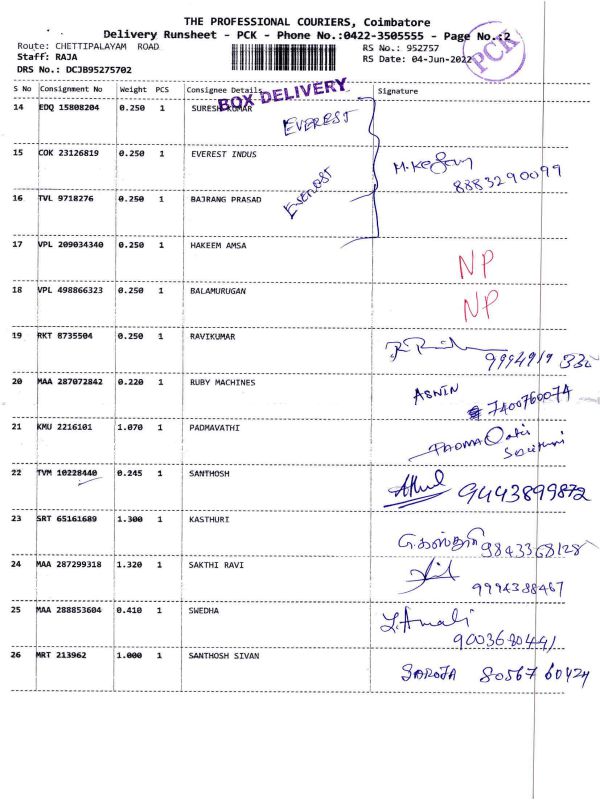 THE PROFESSIONAL COURIERS, Coimbatore
Delivery Runsheet - PCK - Phone No.:0422-3505555 - Page No.:2
Route: CHETTIPALAYAM ROAD RS No.: 952757
Staff: RAJA RS Date: 04-Jun-2022
DRS No.: DCJB95275702
PCK
S No Consignment No Weight PCS Consignee Details Signature
BOX DELIVERY
14 EDQ 15808204 0.250 1 SURESH KUMAR
EVEREST
15 COK 23126819 0.250 1 EVEREST INDUS
8883290099
16 TVL 9718276 0.250 1 BAJRANG PRASAD
EVEREST
17 VPL 209034340 0.250 1 HAKEEM AMSA NP
18 VPL 498866323 0.250 1 BALAMURUGAN NP
19 RKT 8735504 0.250 1 RAVIKUMAR
20 MAA 287072842 0.220 1 RUBY MACHINES ASNIN
7400760074
21 KMU 2216101 1.070 1 PADMAVATHI
22 TVM 10228440 0.245 1 SANTHOSH 9443899872
23 SRT 65161689 1.300 1 KASTHURI 9843368128
24 MAA 287299318 1.320 1 SAKTHI RAVI
9994388467
25 MAA 288853604 0.410 1 SWEDHA L.Amali
9003680441
26 MRT 213962 1.000 1 SANTHOSH SIVAN SAROJA 80567 60424